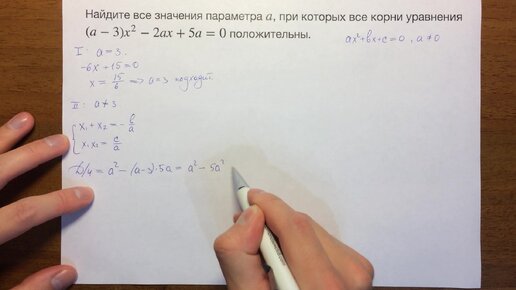 Найдите все значения параметра a, при которых все корни уравнения
(a − 3)x² − 2ax + 5a = 0 положительны.
ax² + bx + c = 0, a ≠ 0
I: a = 3.
-6x + 15 = 0
x = 15/6 => a = 3 подходит.
II: a ≠ 3
x₁ + x₂ = - b/a
x₁x₂ = c/a
D/4 = a² - (a-3)·5a = a² - 5a²